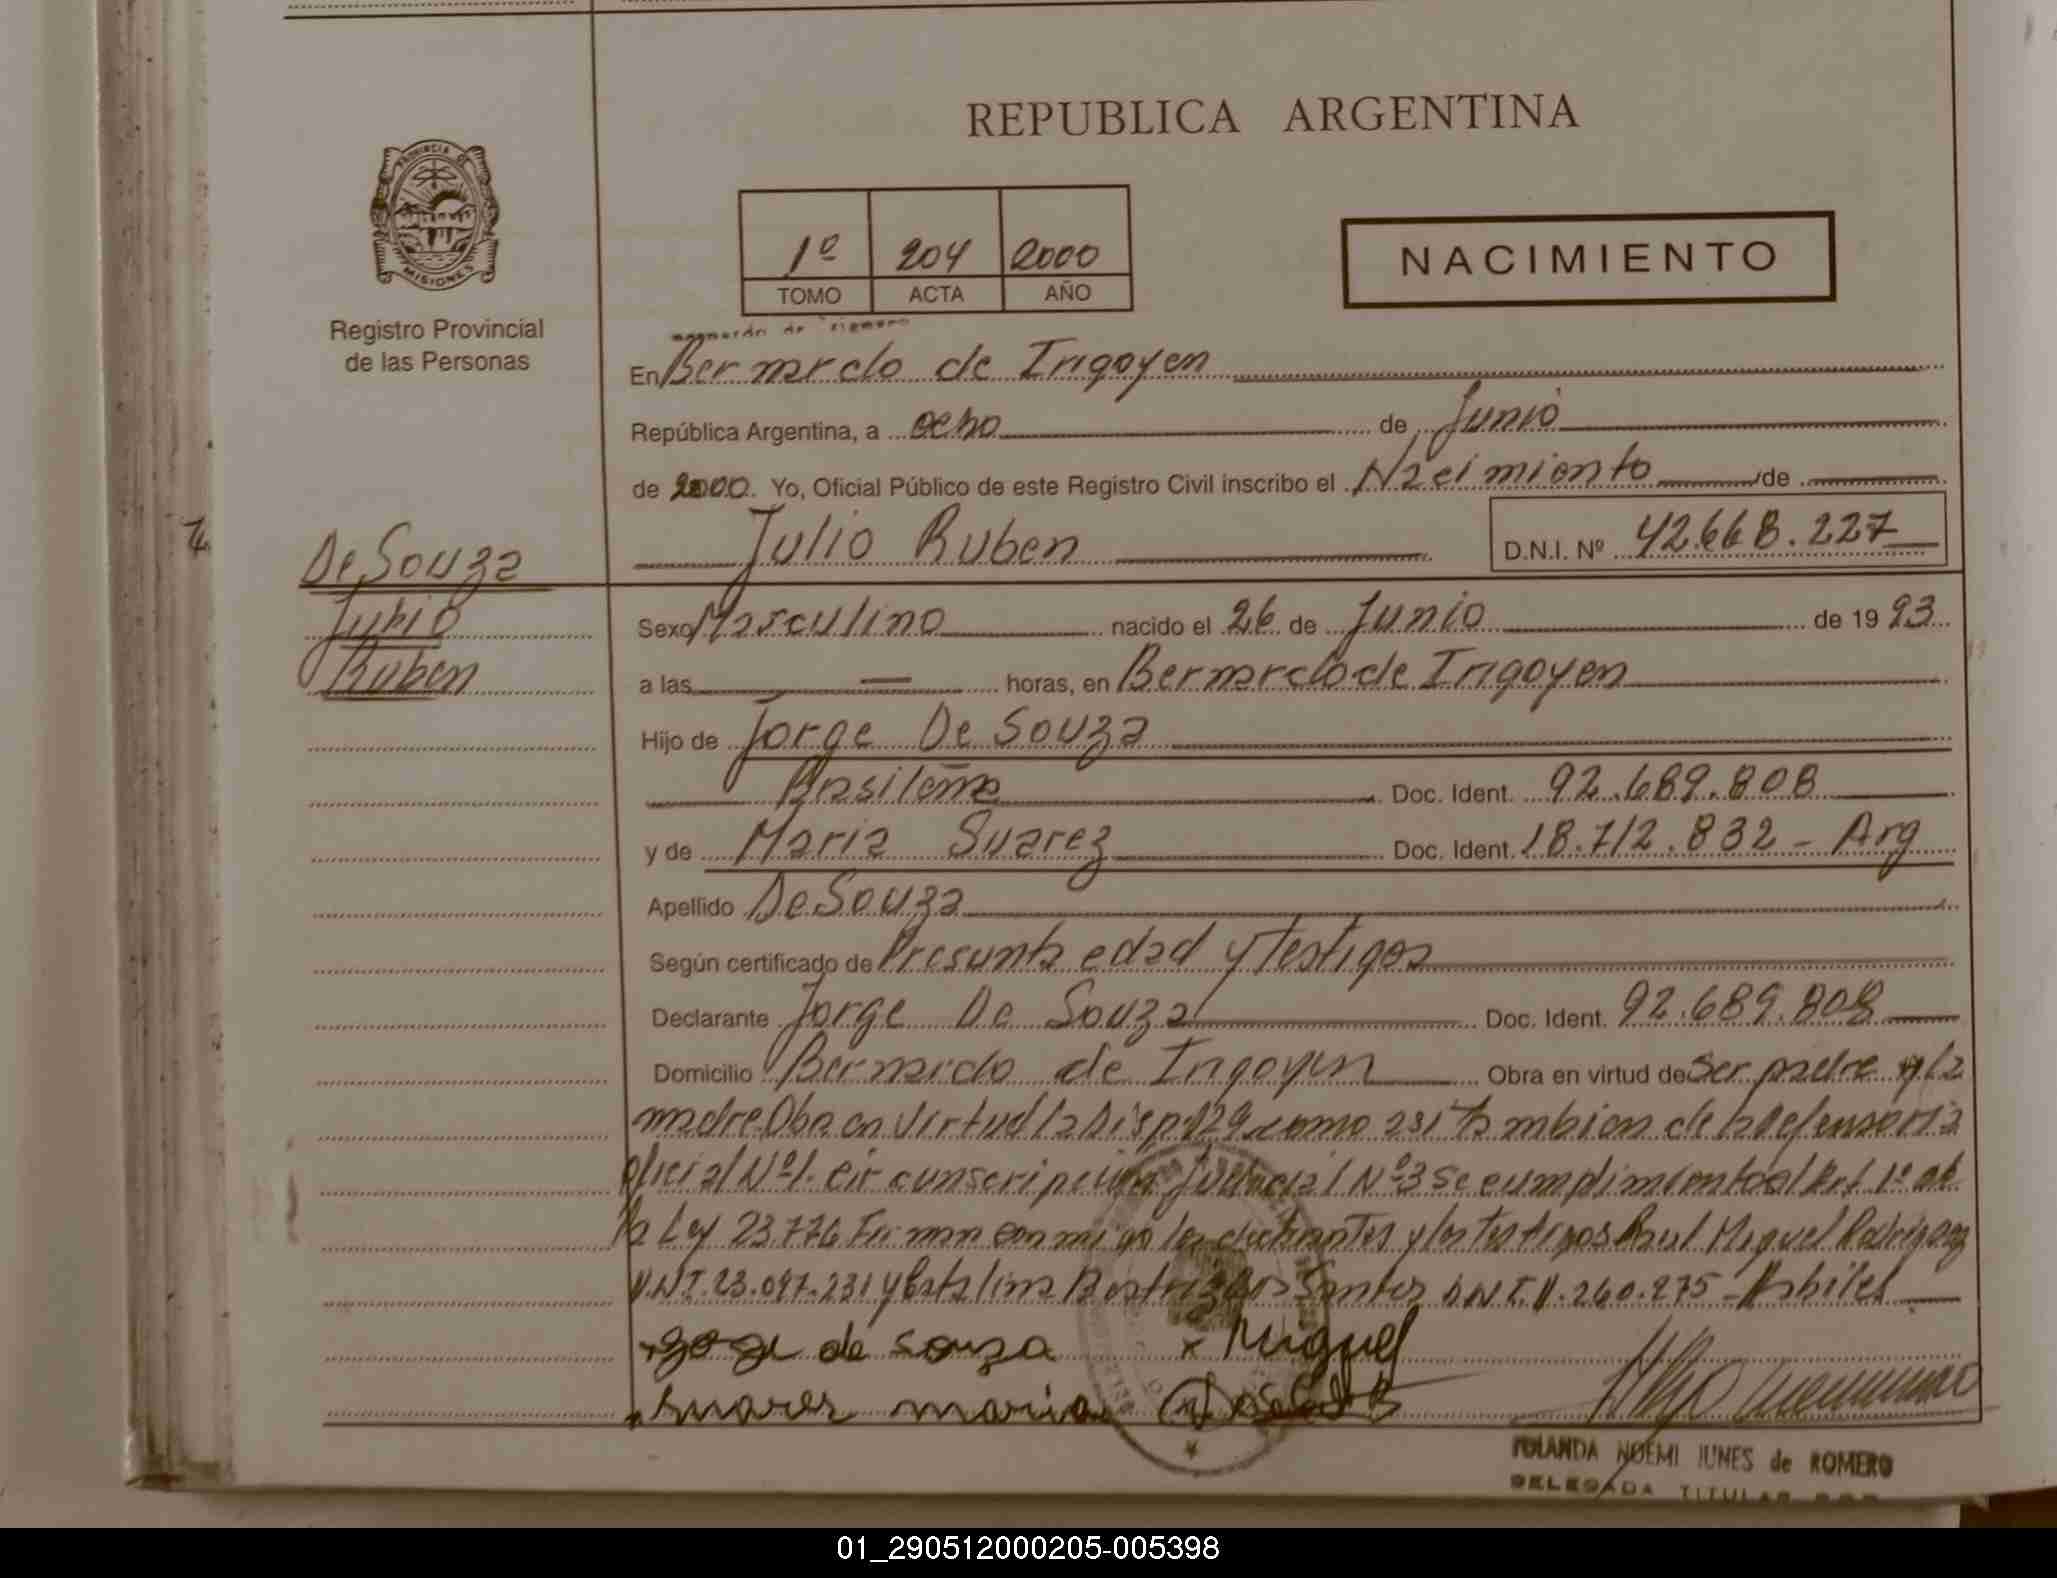 REPUBLICA ARGENTINA
PROVINCIA DE
MISIONES
Registro Provincial
de las Personas
1º 204 2000
TOMO ACTA AÑO
NACIMIENTO
En Bernardo de Irigoyen
República Argentina, a ocho de Junio
de 2000. Yo, Oficial Público de este Registro Civil inscribo el Nacimiento de
Julio Ruben D.N.I. Nº 42.668.227
De Souza
Julio
Ruben
Sexo Masculino nacido el 26 de Junio de 19 93
a las — horas, en Bernardo de Irigoyen
Hijo de Jorge De Souza
Brasileña Doc. Ident. 92.689.808
y de Maria Suarez Doc. Ident. 18.712.832 - Arg
Apellido De Souza
Según certificado de Presunta edad y Testigos
Declarante Jorge De Souza Doc. Ident. 92.689.808
Domicilio Bernardo de Irigoyen Obra en virtud de ser padre y la
madre Obra en virtud la Disp 129 como asi tambien de la Defensoria
oficial Nº 1. circunscripcion Judicial Nº 3 Se cumplimento al Art 1º de
la Ley 23.776 Firman conmigo los declarantes y los testigos Raul Miguel Rodriguez
D.N.I. 23.097.231 y Catalina Beatriz Dos Santos D.N.I. 11.260.275 - Habiles
gorge de souza x Miguel
suares maria
YOLANDA NOEMI JUNES de ROMERO
DELEGADA TITULAR
01_290512000205-005398